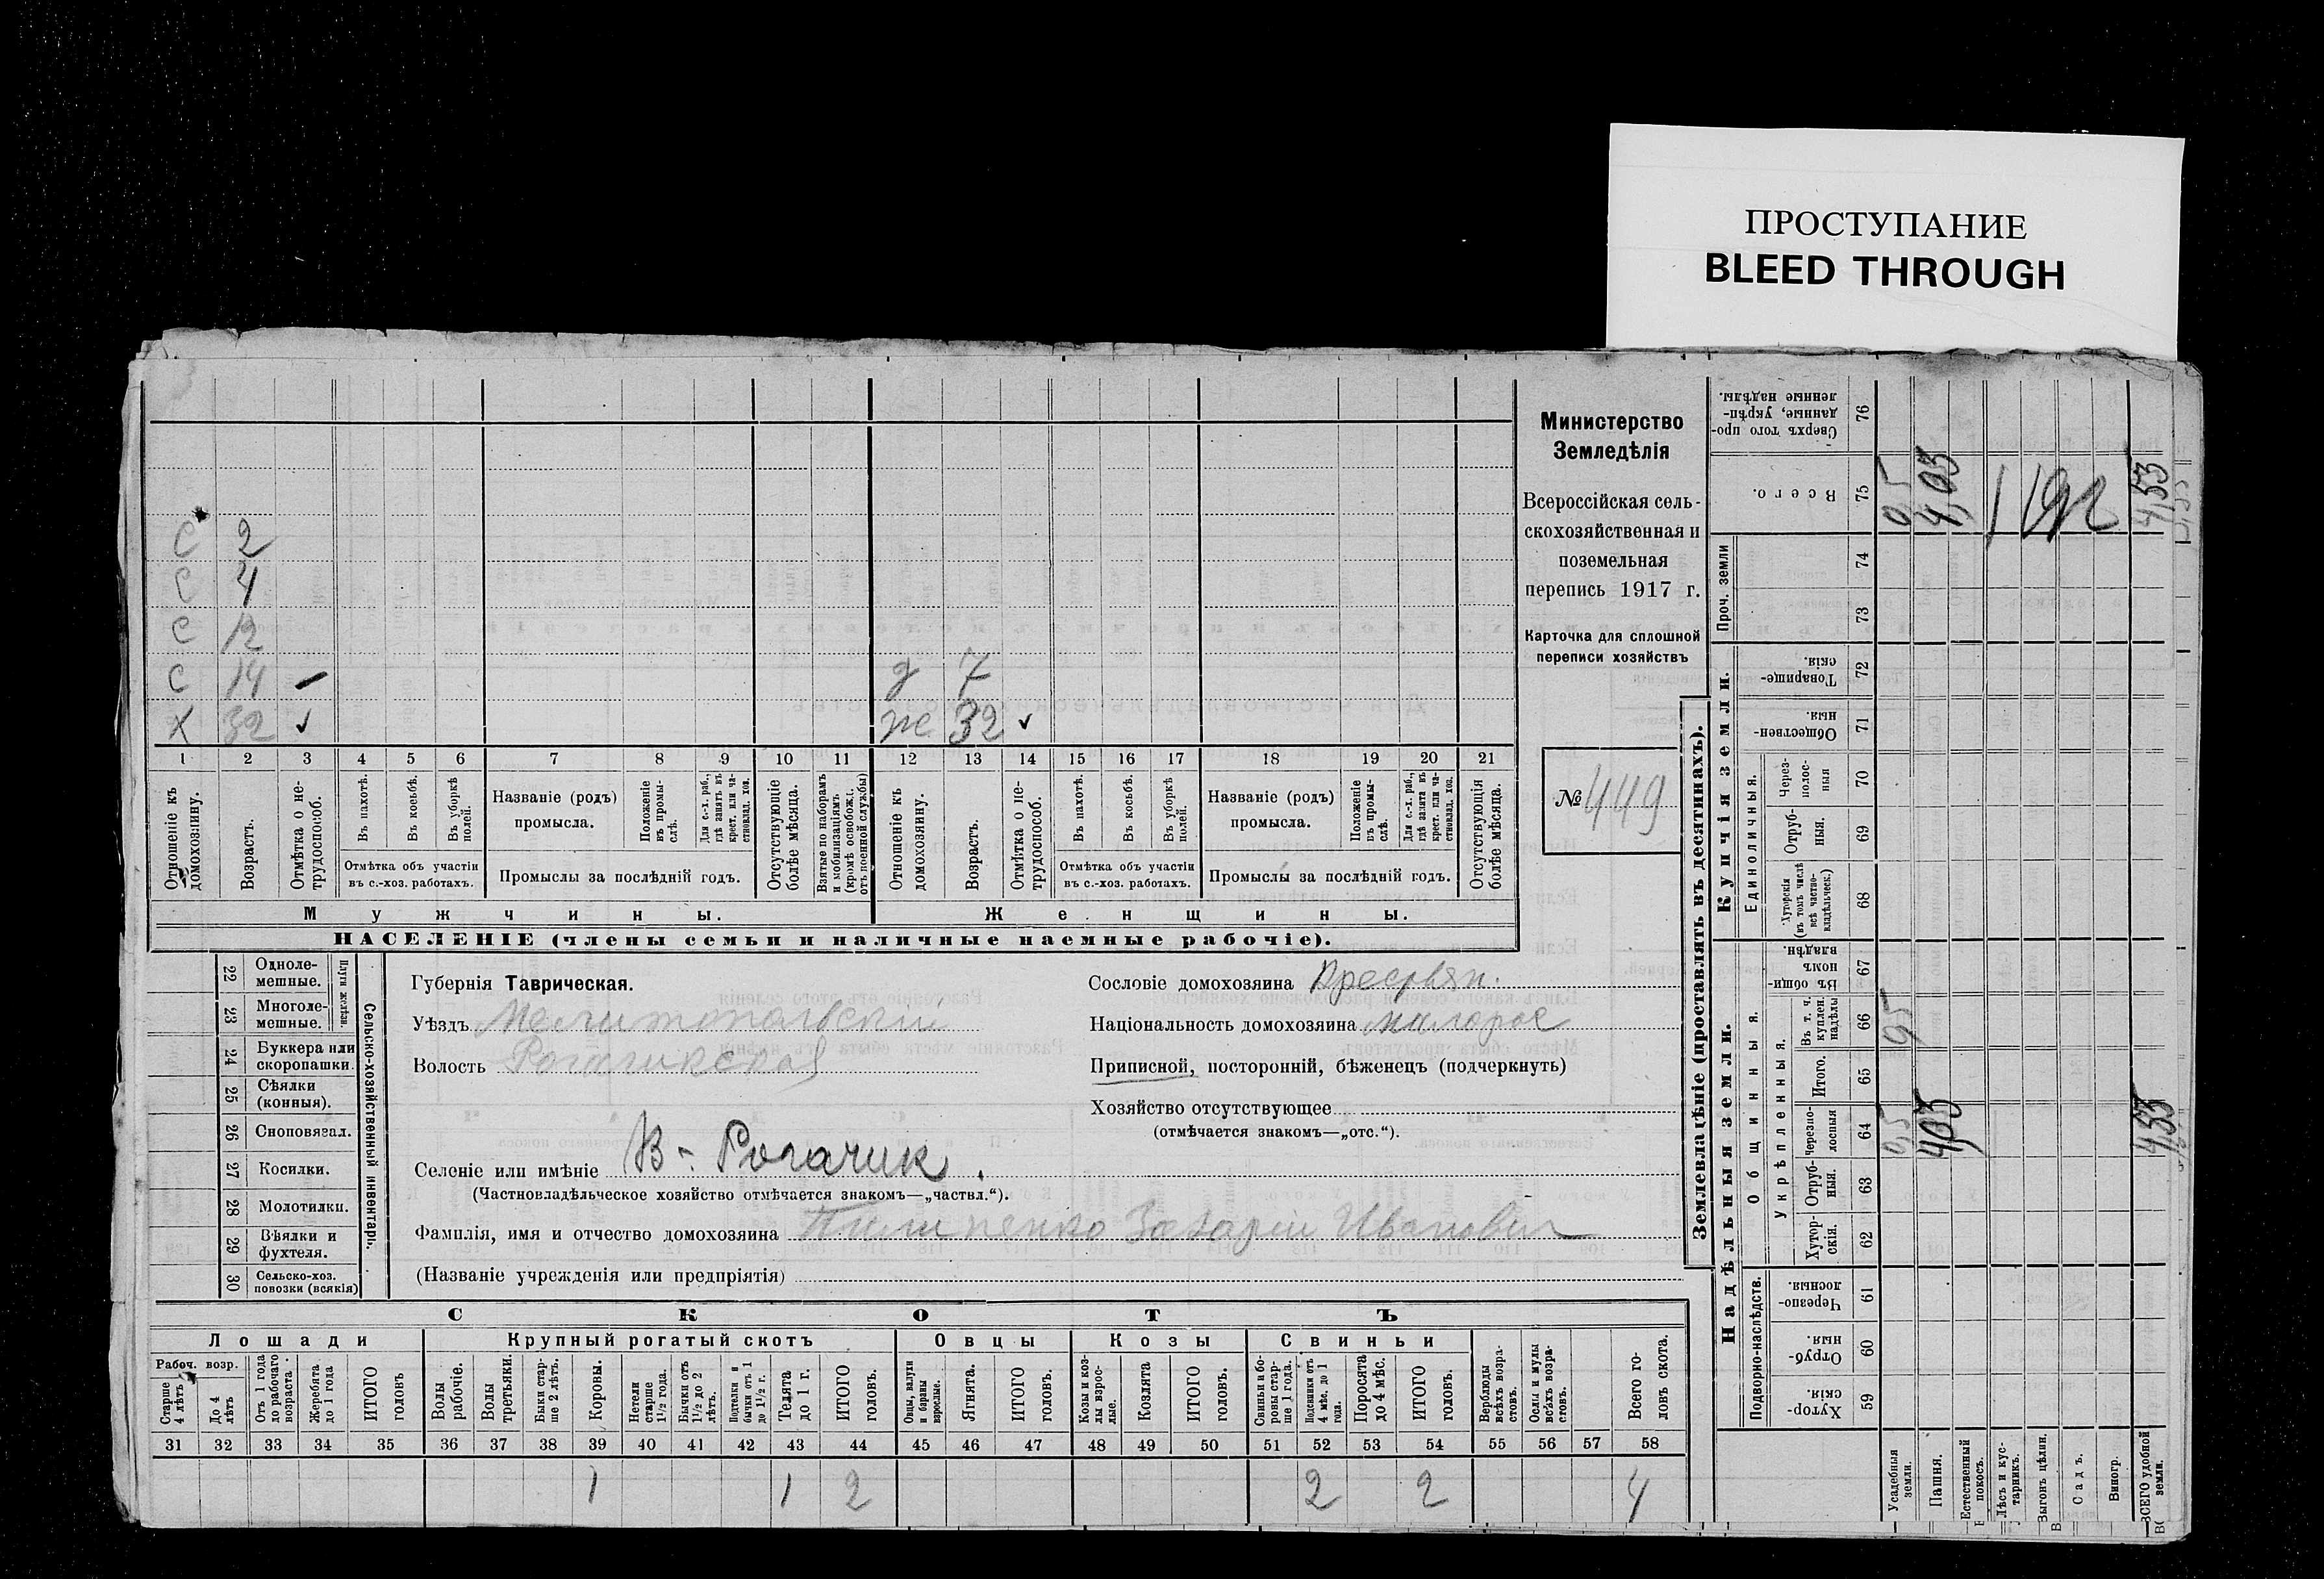 ПРОСТУПАНИЕ
BLEED THROUGH
С 2
С 4
С 12
С 14 –
Х 32 ✓
д 7
же 32 ✓
1 2 3 4 5 6 7 8 9 10 11 12 13 14 15 16 17 18 19 20 21
Отношеніе къ домохозяину.
Возрастъ.
Отмѣтка о не-трудоспособ.
Въ пахотѣ.
Въ косьбѣ.
Въ уборкѣ полей.
Отмѣтка объ участіи
въ с.-хоз. работахъ.
Названіе (родъ)
промысла.
Положеніе въ промы-слѣ.
Для с.-х. раб., гдѣ занятъ въ крест. или ча-стновлад. хоз.
Промыслы за послѣдній годъ.
Отсутствующіе болѣе мѣсяца.
Взятые по наборамъ и мобилизаціямъ (кромѣ освобожд. отъ военной службы)
Отношеніе къ домохозяину.
Возрастъ.
Отмѣтка о не-трудоспособ.
Въ пахотѣ.
Въ косьбѣ.
Въ уборкѣ полей.
Отмѣтка объ участіи
въ с.-хоз. работахъ.
Названіе (родъ)
промысла.
Положеніе въ промы-слѣ.
Для с.-х. раб., гдѣ занята въ крест. или ча-стновлад. хоз.
Промыслы за послѣдній годъ.
Отсутствующія болѣе мѣсяца.
Мужчины.
Женщины.
НАСЕЛЕНІЕ (члены семьи и наличные наемные рабочіе).
Министерство
Земледѣлія
Всероссійская сель-
скохозяйственная и
поземельная
перепись 1917 г.
Карточка для сплошной
переписи хозяйствъ
№ 449
22 Одноле-мешные.
23 Многоле-мешные.
Плуги желѣзн.
24 Буккера или скоропашки.
25 Сѣялки (конныя).
26 Сноповязал.
27 Косилки.
28 Молотилки.
29 Вѣялки и фухтеля.
30 Сельско-хоз. повозки (всякія)
Сельско-хозяйственный инвентарь.
Губернія Таврическая.
Уѣздъ Мелитопольскій
Волость Рогачикская
Селеніе или имѣніе В-Рогачик.
(Частновладѣльческое хозяйство отмѣчается знакомъ—„частвл.“).
Фамилія, имя и отчество домохозяина Захарій Иванович
(Названіе учрежденія или предпріятія)
Сословіе домохозяина Крестьян.
Національность домохозяина малорос
Приписной, посторонній, бѣженецъ (подчеркнуть)
Хозяйство отсутствующее
(отмѣчается знакомъ—„отс.“).
СКОТЪ
Лошади
Крупный рогатый скотъ
Овцы
Козы
Свиньи
Рабоч. возр.
Старше 4 лѣтъ
До 4 лѣтъ
Отъ 1 года до рабочаго возраста.
Жеребята до 1 года
ИТОГО головъ
Волы рабочіе.
Волы третьяки.
Быки стар-ше 2 лѣтъ.
Коровы.
Нетели старше 1½ года.
Бычки отъ 1½ до 2 лѣтъ.
Подтелки и бычки отъ 1 до 1½ г.
Телята до 1 г.
ИТОГО головъ.
Овцы, валухи и бараны взрослые.
Ягнята.
ИТОГО головъ.
Козы и коз-лы взрос-лые.
Козлята
ИТОГО головъ.
Свиньи и бо-ровы стар-ше 1 года.
Подсвинки отъ 4 мѣс. до 1 года.
Поросята до 4 мѣс.
ИТОГО головъ.
Верблюды всѣхъ возра-стовъ.
Ослы и мулы всѣхъ возра-стовъ.
Всего го-ловъ скота.
31 32 33 34 35 36 37 38 39 40 41 42 43 44 45 46 47 48 49 50 51 52 53 54 55 56 57 58
1 1 2 2 2 4
Землевладѣніе (проставлять въ десятинахъ).
Надѣльныя земли.
Купчія земли.
Проч. земли
Подворно-наслѣдств.
Общинныя.
Укрѣпленныя.
Единоличныя.
Хутор-скія. 59
Отруб-ныя. 60
Черезпо-лосныя 61
Хутор-скія. 62
Отруб-ныя. 63
Черезпо-лосныя 64
Итого. 65
Въ т. ч. куплен. надѣлы 66
Въ общи-номъ владѣн. 67
Хуторскія (въ томъ числѣ всѣ частно-владѣльческ.) 68
Отруб-ныя. 69
Через-полос-ныя 70
Обществен-ныя. 71
Товарище-скія. 72
73
74
Всего. 75
Сверхъ того про-данные, укрѣп-ленные надѣлы. 76
Усадебныя земли.
Пашня.
Естественный покосъ.
Лѣсъ и кус-тарникъ.
Выгонъ цѣлин.
Садъ.
Виногр.
ВСЕГО удобной земли.
0,5 0,5 0,5
4,03 4,03
4,53 4,53